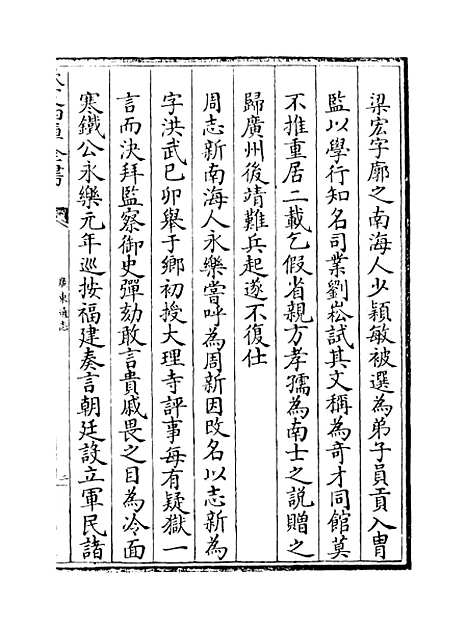 梁宏字廓之南海人少穎敏被選為弟子員貢入冑
監以學行知名司業劉崧試其文稱為奇才同館莫
不推重居二載乞假省親方孝孺為南士之說贈之
歸廣州後靖難兵起遂不復仕
周志新南海人永樂嘗呼為周新因改名以志新為
字洪武己卯舉于鄉初授大理寺評事每有疑獄一
言而決拜監察御史彈劾敢言貴戚畏之目為冷面
寒鐵公永樂元年巡按福建奏言朝廷設立軍民諸
廣東通志
二